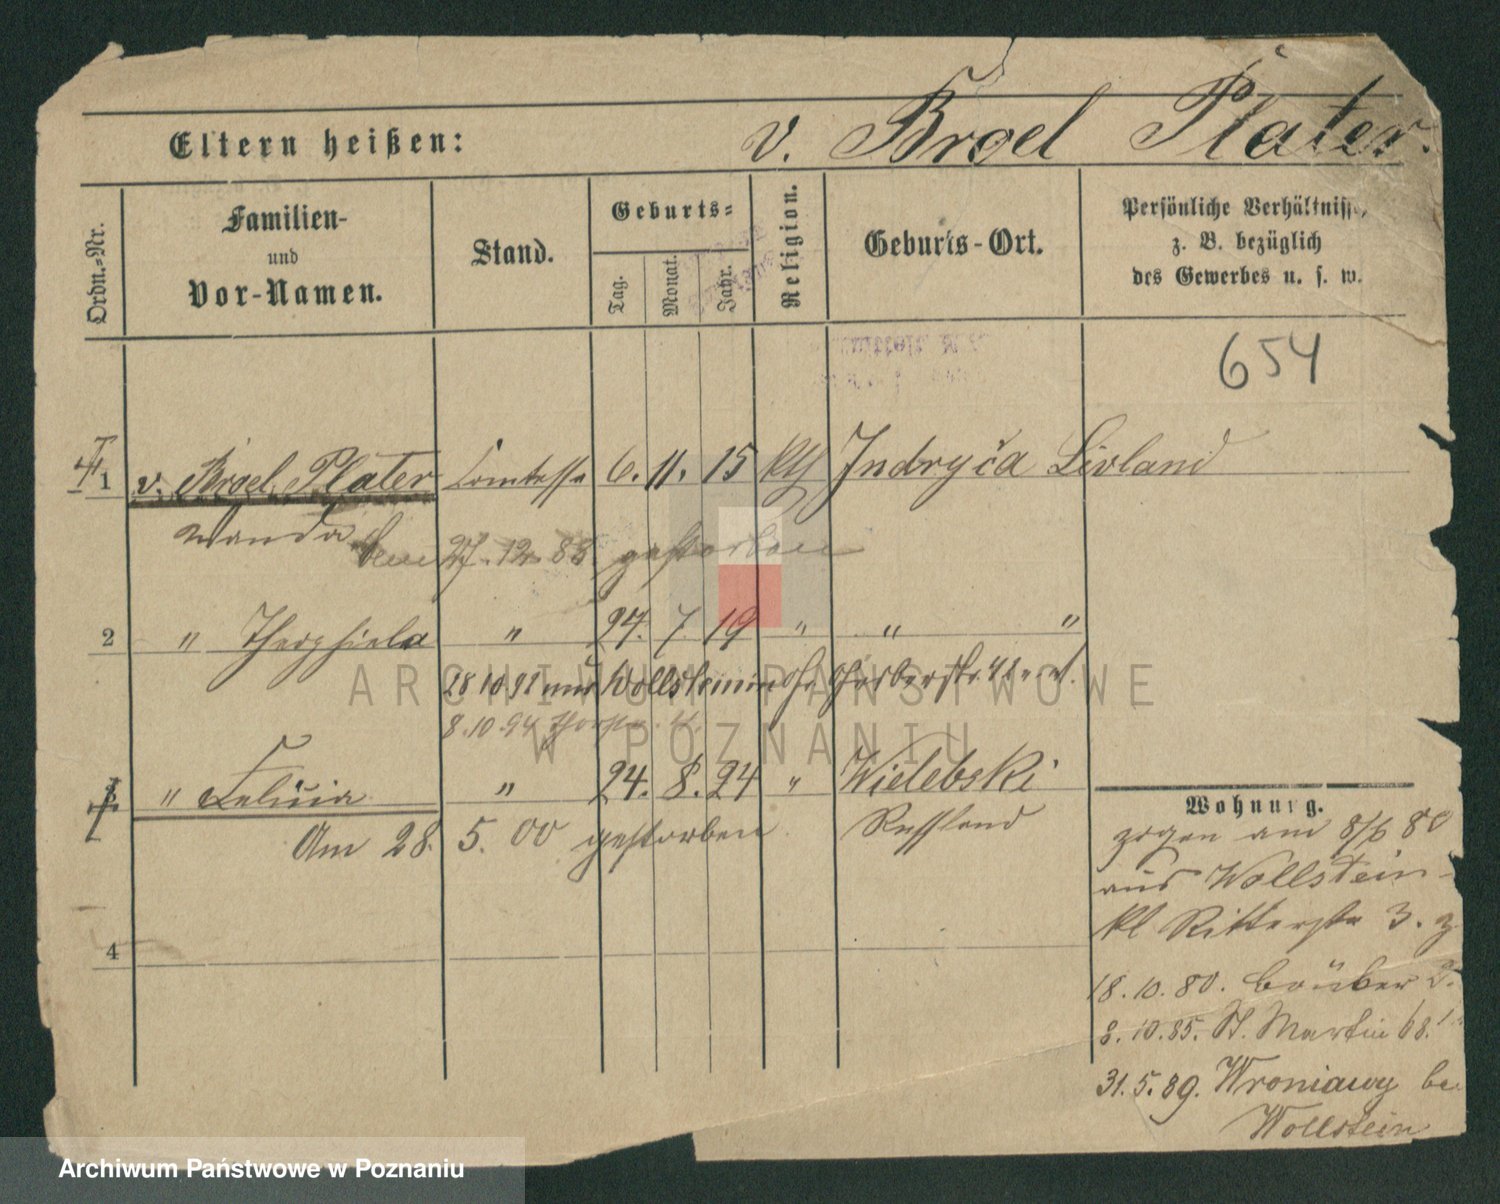 v. Broel Plater.
Eltern heißen:
Ordn.-Nr.
Familien-
und
Vor-Namen.
Stand.
Geburts-
Tag.
Monat.
Jahr.
Religion.
Geburts-Ort.
Persönliche Verhältnisse,
z. B. bezüglich
des Gewerbes u. s. w.
654
1 v. Broel Plater Comtesse 6. 11. 15 kth Indryča Livland
Wanda
27. 12. 85 gestorben
2 " Theophiela " 27. 7. 19 " " "
28 10 91 aus Wollstein
8. 10. 94
" Felicia " 24. 8. 24 " Wielebski
Am 28. 5. 00 gestorben Russland
4
Wohnung.
zogen am 8/6 80
aus Wollstein
kl Ritterstr 3.
18. 10. 80.
8. 10. 85. St. Martin 68.
31. 5. 89. Wroniawy bei
Wollstein
ARCHIWUM PAŃSTWOWE
W POZNANIU
Archiwum Państwowe w Poznaniu